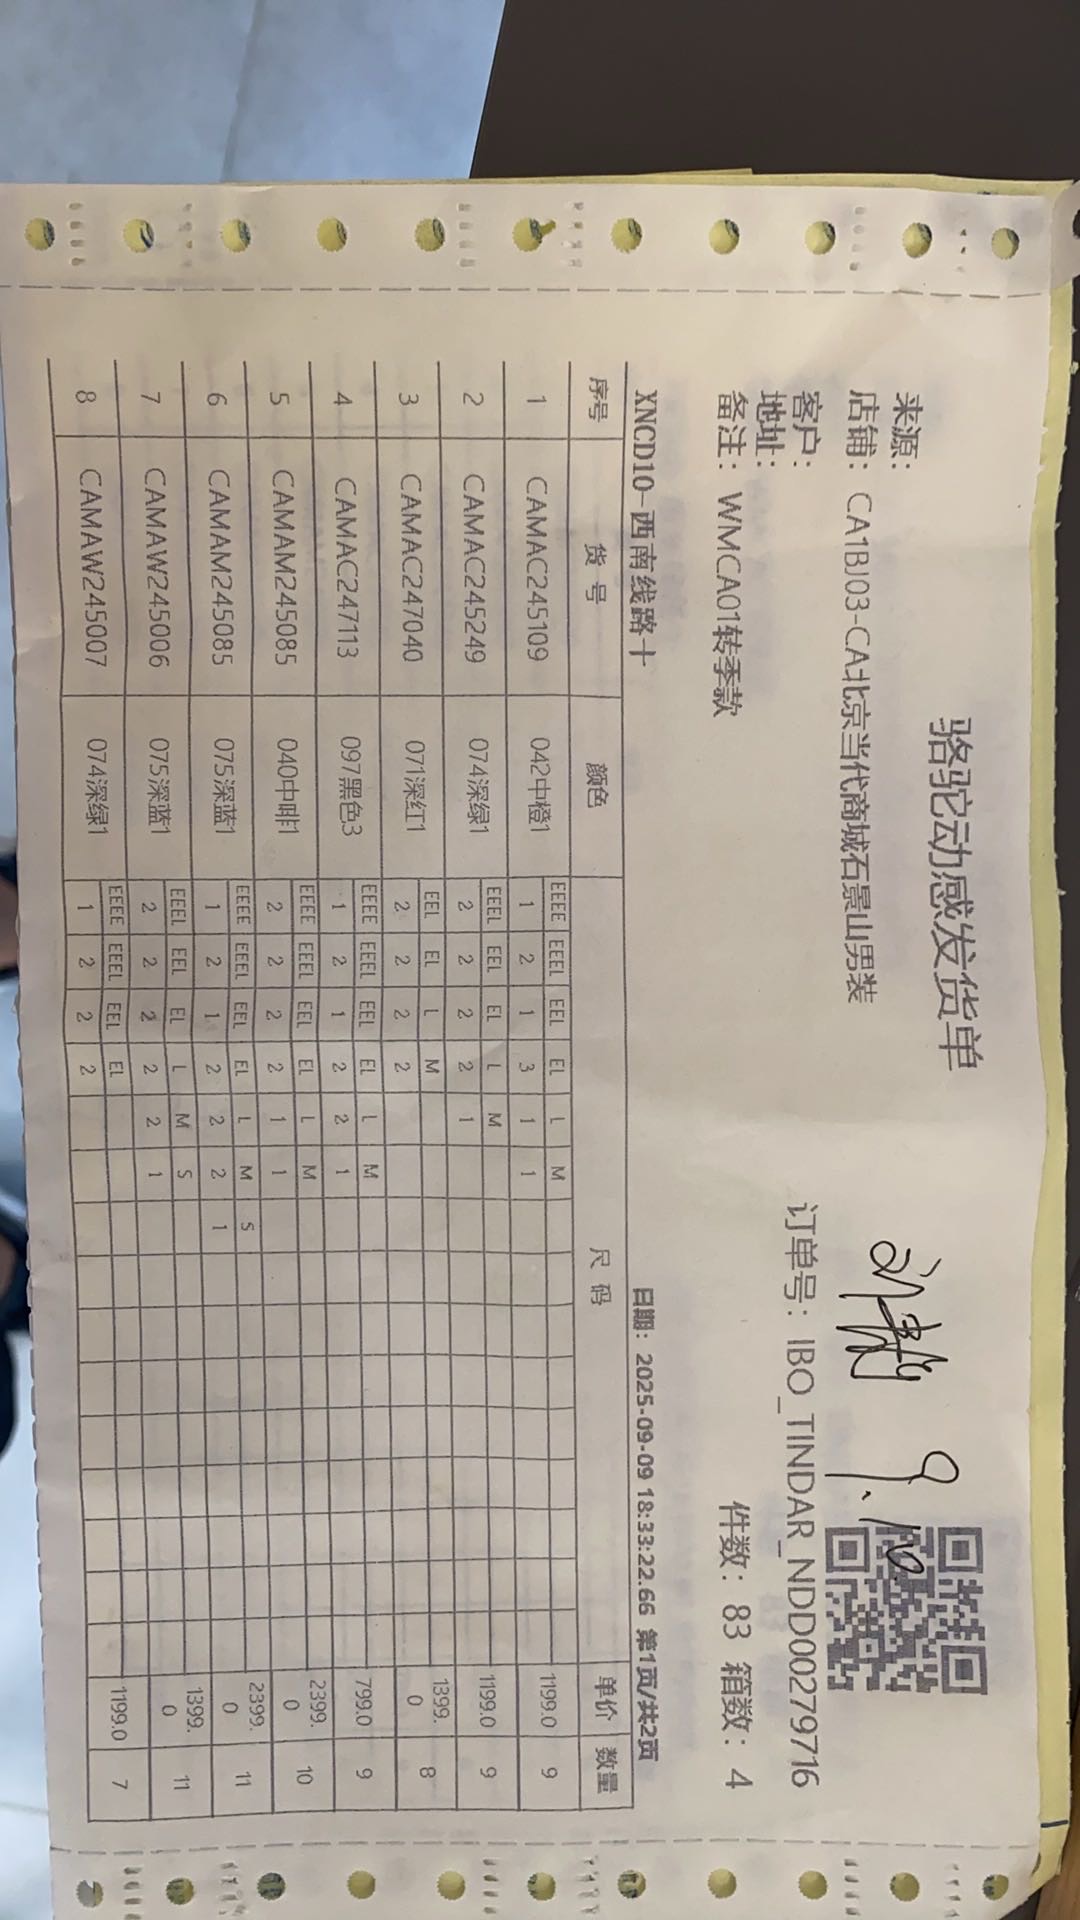 骆驼动感发货单
来源：
店铺：CA1BJ03-CA北京当代商城石景山男装
客户：
订单号：IBO_TINDAR_NDD00279716
地址：
备注：WMCA01转季款
件数：83 箱数：4
9.10
XNCD10-西南线路十 日期：2025-09-09 18:33:22.66 第1页/共2页
序号 货号 颜色 尺码 单价 数量
EEEE EEEL EEL EL L M
1 CAMAC245109 042中橙1 1 2 1 3 1 1 1199.0 9
EEEL EEL EL L M
2 CAMAC245249 074深绿1 2 2 2 2 1 1199.0 9
EEL EL L M
3 CAMAC247040 071深红1 2 2 2 2 1399.0 8
EEEE EEEL EEL EL L M
4 CAMAC247113 097黑色3 1 2 1 2 2 1 799.0 9
EEEE EEEL EEL EL L M
5 CAMAM245085 040中啡1 2 2 2 2 1 1 2399.0 10
EEEE EEEL EEL EL L M S
6 CAMAM245085 075深蓝1 1 2 1 2 2 2 1 2399.0 11
EEEL EEL EL L M S
7 CAMAW245006 075深蓝1 2 2 2 2 2 1 1399.0 11
EEEE EEEL EEL EL
8 CAMAW245007 074深绿1 1 2 2 2 1199.0 7